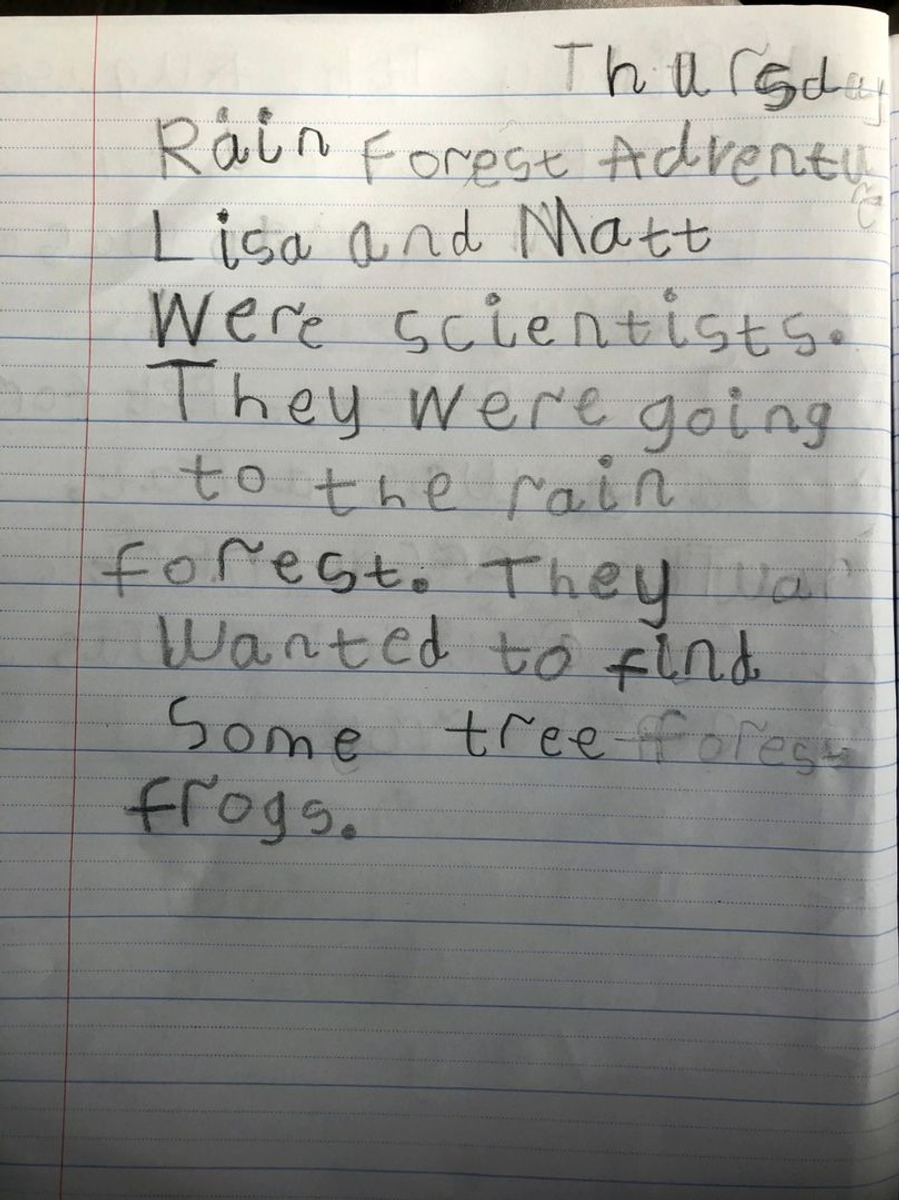 Thursday
Rain Forest Adventu
re
Lisa and Matt
Were scientists.
They were going
to the rain
forest. They
wanted to find
Some tree
frogs.